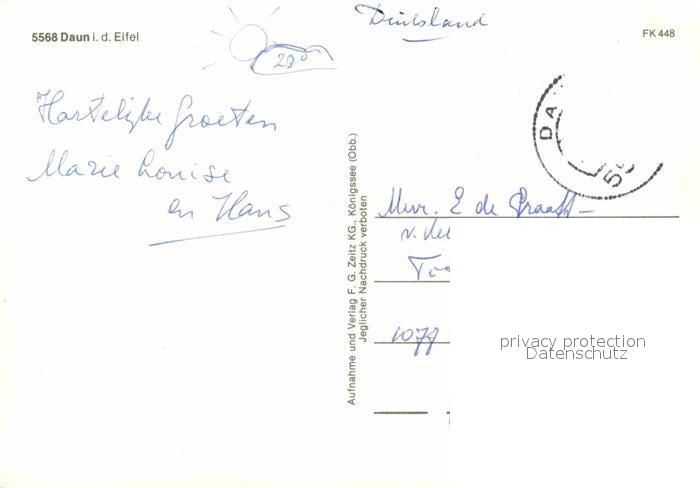 5568 Daun i. d. Eifel
28°
Duitsland
FK 448
Hartelijke groeten
Marie Louise
en Hans
Aufnahme und Verlag F. G. Zeitz KG., Königssee (Obb.)
Jeglicher Nachdruck verboten
DA
Mevr. E de Graaff -
1079
privacy protection
Datenschutz